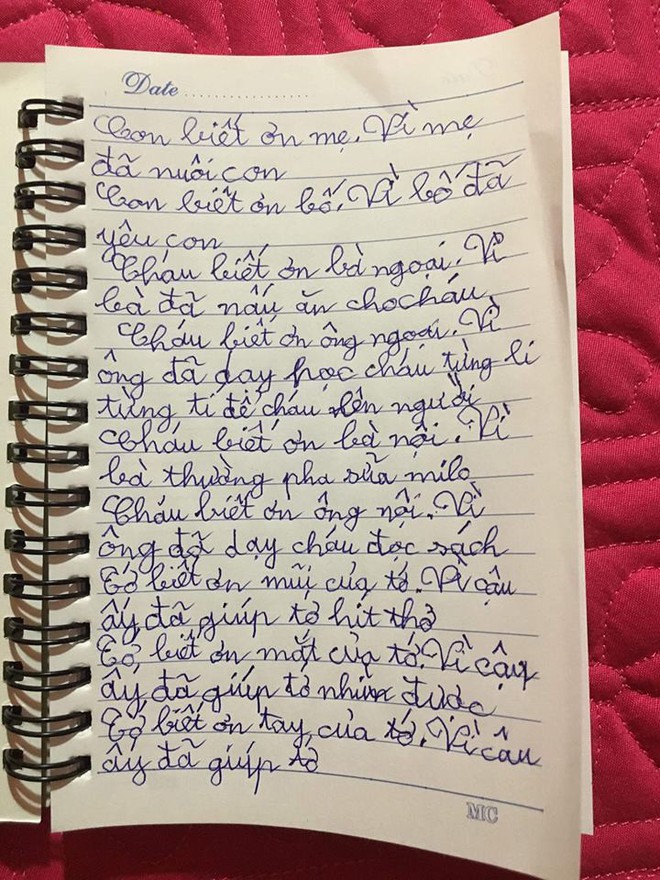 Date
Con biết ơn mẹ. Vì mẹ
đã nuôi con
Con biết ơn bố. Vì bố đã
yêu con
Cháu biết ơn bà ngoại. Vì
bà đã nấu ăn cho cháu
Cháu biết ơn ông ngoại. Vì
ông đã dạy học cháu từng li
từng tí để cháu lên người
Cháu biết ơn bà nội. Vì
bà thường pha sữa milo
Cháu biết ơn ông nội. Vì
ông đã dạy cháu đọc sách
Tớ biết ơn mũi của tớ. Vì cậu
ấy đã giúp tớ hít thở
Tớ biết ơn mắt của tớ. Vì cậu
ấy đã giúp tớ nhìn được
Tớ biết ơn tay của tớ. Vì cậu
ấy đã giúp tớ
MC